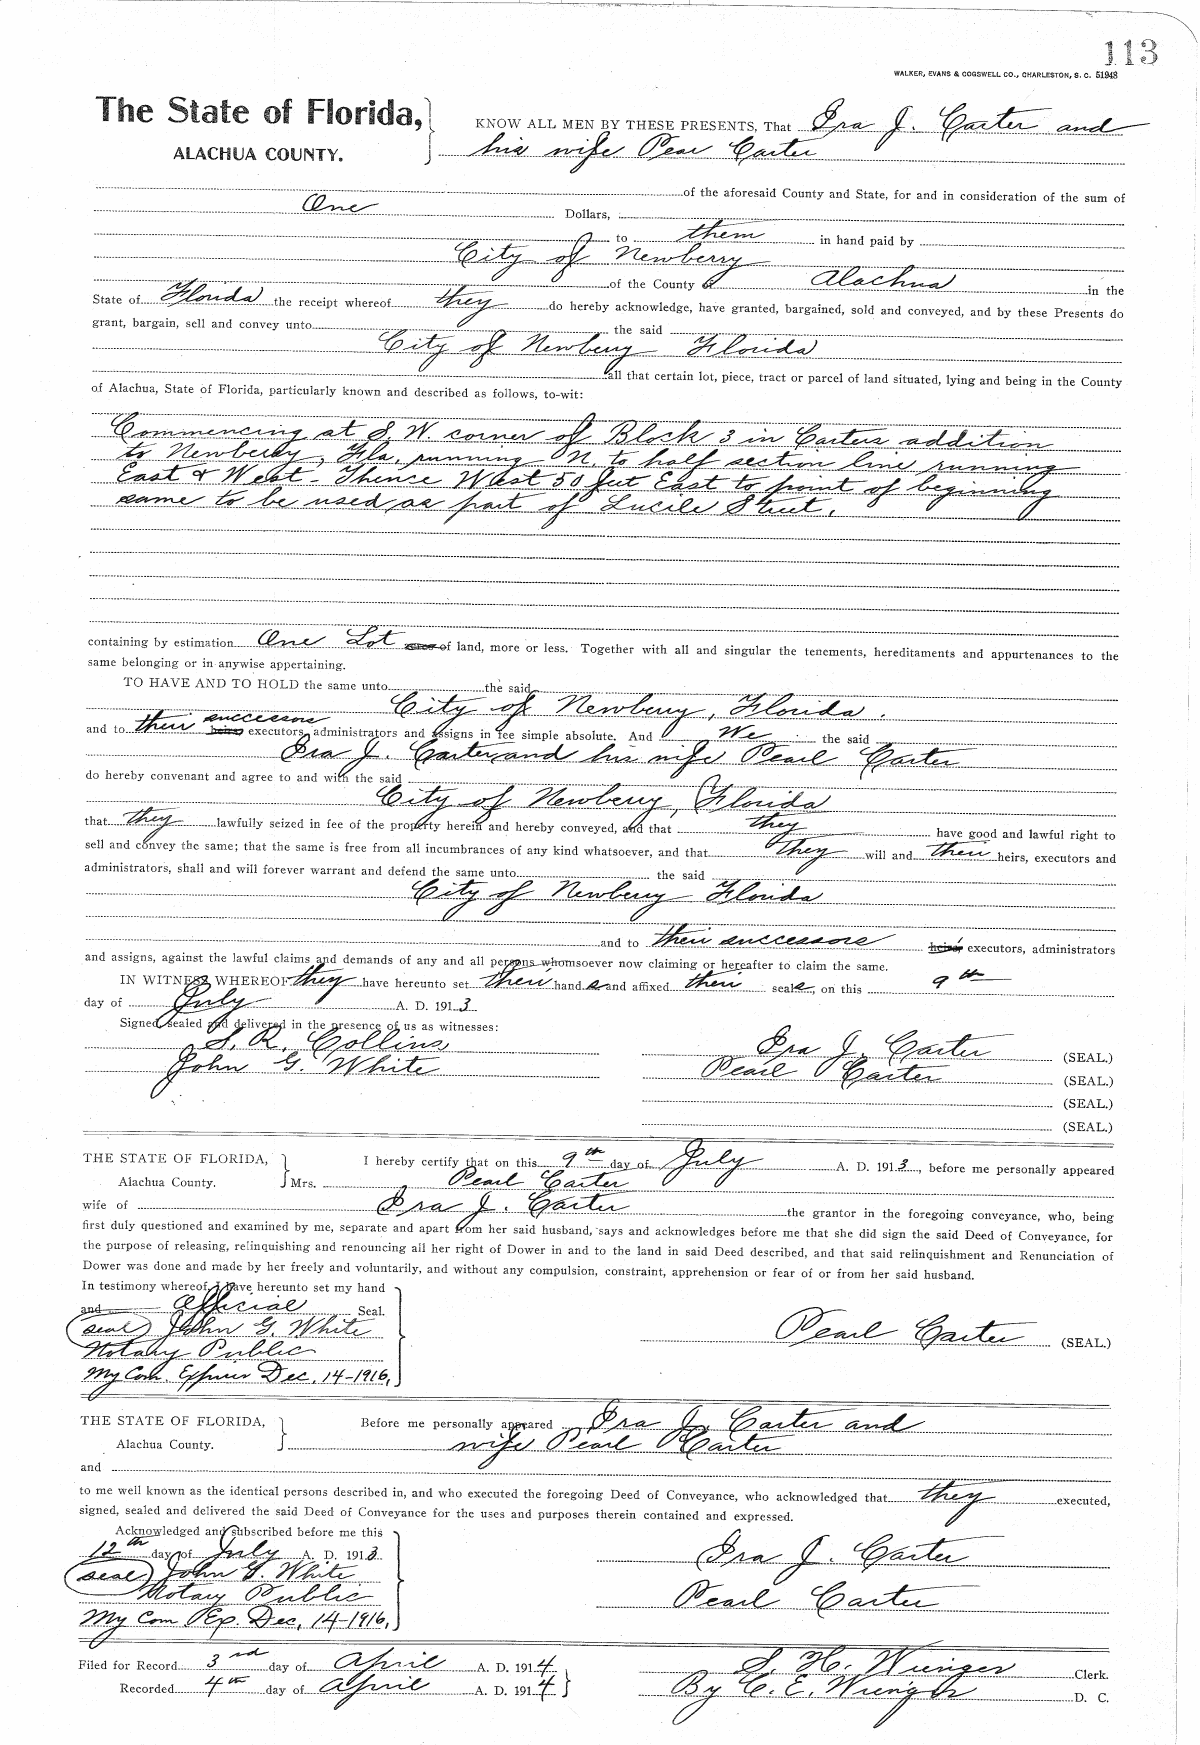 113
WALKER, EVANS & COGSWELL CO., CHARLESTON, S. C. 51948
The State of Florida,
ALACHUA COUNTY.
KNOW ALL MEN BY THESE PRESENTS, That Ira J. Carter and
his wife Pear Carter
of the aforesaid County and State, for and in consideration of the sum of
One Dollars,
to them in hand paid by
City of Newberry
of the County of Alachua in the
State of Florida the receipt whereof they do hereby acknowledge, have granted, bargained, sold and conveyed, and by these Presents do
grant, bargain, sell and convey unto the said
City of Newberry Florida
all that certain lot, piece, tract or parcel of land situated, lying and being in the County
of Alachua, State of Florida, particularly known and described as follows, to-wit:
Commencing at S. W. corner of Block 3 in Carters addition
to Newberry, Fla. running N. to half section line running
East & West - Thence West 50 feet East to point of beginning
same to be used as part of Lucile Street.
containing by estimation One Lot acres of land, more or less. Together with all and singular the tenements, hereditaments and appurtenances to the
same belonging or in anywise appertaining.
TO HAVE AND TO HOLD the same unto the said
City of Newberry, Florida.
and to their successors heirs, executors, administrators and assigns in fee simple absolute. And We the said
Ira J. Carter and his wife Pearl Carter
do hereby convenant and agree to and with the said
City of Newberry, Florida
that they lawfully seized in fee of the property herein and hereby conveyed, and that they have good and lawful right to
sell and convey the same; that the same is free from all incumbrances of any kind whatsoever, and that they will and their heirs, executors and
administrators, shall and will forever warrant and defend the same unto the said
City of Newberry Florida
and to their successors heirs, executors, administrators
and assigns, against the lawful claims and demands of any and all persons whomsoever now claiming or hereafter to claim the same.
IN WITNESS WHEREOF they have hereunto set their hands and affixed their seals, on this 9th
day of July A. D. 1913
Signed, sealed and delivered in the presence of us as witnesses:
S. R. Collins
John G. White
Ira J. Carter (SEAL.)
Pearl Carter (SEAL.)
(SEAL.)
(SEAL.)
THE STATE OF FLORIDA,
Alachua County.
I hereby certify that on this 9th day of July A. D. 1913, before me personally appeared
Mrs. Pearl Carter
wife of Ira J. Carter the grantor in the foregoing conveyance, who, being
first duly questioned and examined by me, separate and apart from her said husband, says and acknowledges before me that she did sign the said Deed of Conveyance, for
the purpose of releasing, relinquishing and renouncing all her right of Dower in and to the land in said Deed described, and that said relinquishment and Renunciation of
Dower was done and made by her freely and voluntarily, and without any compulsion, constraint, apprehension or fear of or from her said husband.
In testimony whereof, I have hereunto set my hand
and Official Seal.
(seal) John G. White
Notary Public
My Com. Expires Dec. 14-1916.
Pearl Carter (SEAL.)
THE STATE OF FLORIDA,
Alachua County.
Before me personally appeared Ira J. Carter and
wife Pearl Carter
and
to me well known as the identical persons described in, and who executed the foregoing Deed of Conveyance, who acknowledged that they executed,
signed, sealed and delivered the said Deed of Conveyance for the uses and purposes therein contained and expressed.
Acknowledged and subscribed before me this
12th day of July A. D. 1913
(seal) John G. White
Notary Public
My Com Exp. Dec. 14-1916.
Ira J. Carter
Pearl Carter
Filed for Record 3rd day of April A. D. 1914
Recorded 4th day of April A. D. 1914
S. H. Wienges Clerk.
By C. E. Wienges D. C.